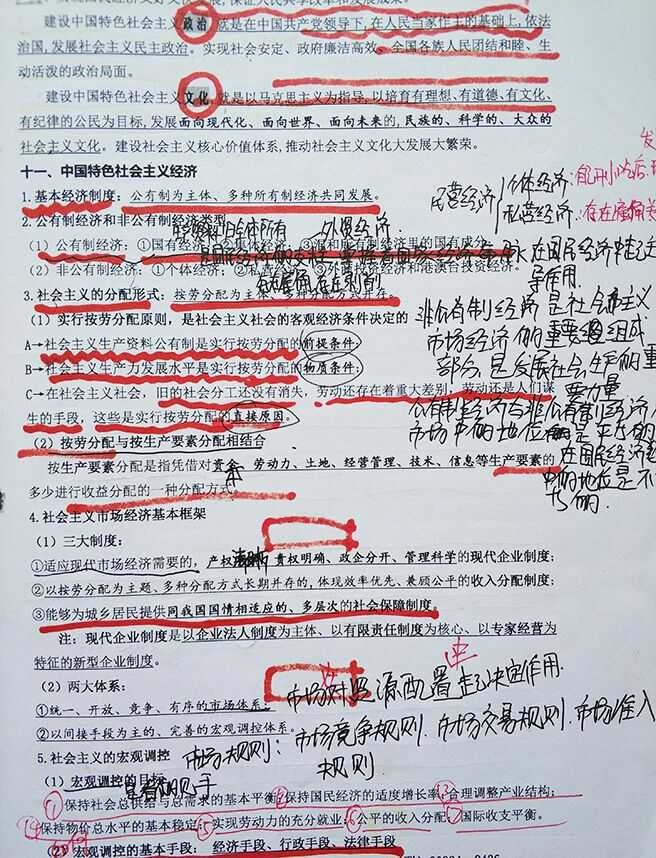 建设中国特色社会主义政治，就是在中国共产党领导下,在人民当家作主的基础上,依法
治国,发展社会主义民主政治。实现社会安定、政府廉洁高效、全国各族人民团结和睦、生
动活泼的政治局面。
建设中国特色社会主义文化，就是以马克思主义为指导,以培育有理想、有道德、有文化、
有纪律的公民为目标,发展面向现代化、面向世界、面向未来的,民族的、科学的、大众的
社会主义文化。建设社会主义核心价值体系,推动社会主义文化大发展大繁荣。
十一、中国特色社会主义经济
1.基本经济制度：公有制为主体、多种所有制经济共同发展。
民营经济
个体经济
私营经济
2.公有制经济和非公有制经济类型
外资经济
（1）公有制经济：①国有经济
（2）非公有制经济：①个体经济；
和港澳台投资经济。
在国民经济中起
导作用.
3.社会主义的分配形式：按劳分配为主体、多种分配方式并存。
（1）实行按劳分配原则，是社会主义社会的客观经济条件决定的
A→社会主义生产资料公有制是实行按劳分配的前提条件；
B→社会主义生产力发展水平是实行按劳分配的物质条件；
C→在社会主义社会，旧的社会分工还没有消失，劳动还存在着重大差别，劳动还是人们谋
生的手段，这些是实行按劳分配的直接原因。
非公有制经济是社会主义
市场经济的重要组成
部分,是发展社会生产的重
要力量
公有制经济与非公有制经济
市场中的地位是平等的
在国民经济
中的地位是不
（2）按劳分配与按生产要素分配相结合
按生产要素分配是指凭借对资本、劳动力、土地、经营管理、技术、信息等生产要素的
多少进行收益分配的一种分配方式
4.社会主义市场经济基本框架
（1）三大制度：
①适应现代市场经济需要的，产权清晰、责权明确、政企分开、管理科学的现代企业制度；
②以按劳分配为主题、多种分配方式长期并存的,体现效率优先、兼顾公平的收入分配制度；
③能够为城乡居民提供同我国国情相适应的、多层次的社会保障制度。
注：现代企业制度是以企业法人制度为主体、以有限责任制度为核心、以专家经营为
特征的新型企业制度。
（2）两大体系：
市场对资源配置起决定作用.
①统一、开放、竞争、有序的市场体系。
②以间接手段为主的、完善的宏观调控体系。
市场规则：市场竞争规则.市场交易规则.市场准入
规则
5.社会主义的宏观调控
（1）宏观调控的目标
①保持社会总供给与总需求的基本平衡②保持国民经济的适度增长率③合理调整产业结构；
④保持物价总水平的基本稳定；⑤实现劳动力的充分就业；⑥公平的收入分配⑦国际收支平衡。
（2）宏观调控的基本手段：经济手段、行政手段、法律手段